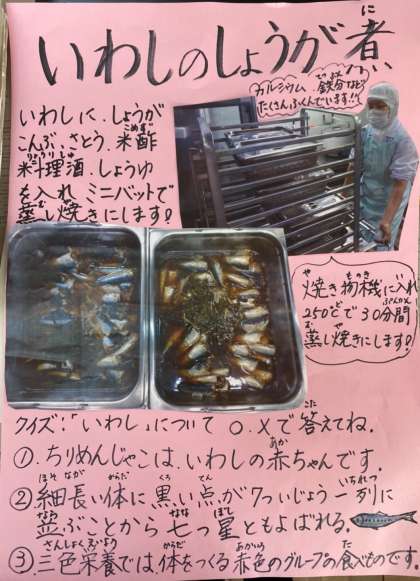 いわしのしょうが煮
カルシウム、鉄分など
たくさんふくんでいます!!
いわしに、しょうが
こんぶ、さとう、米酢
料理酒、しょうゆ
を入れ、ミニバットで
蒸し焼きにします!
焼き物機に入れ
250℃で30分間
蒸し焼きにします!
クイズ:「いわし」について ○、×で答えてね。
①、ちりめんじゃこは、いわしの赤ちゃんです。
②細長い体に黒い点が7ついじょう一列に
並ぶことから七つ星ともよばれる。
③三色栄養では、体をつくる赤色のグループの食べものです。